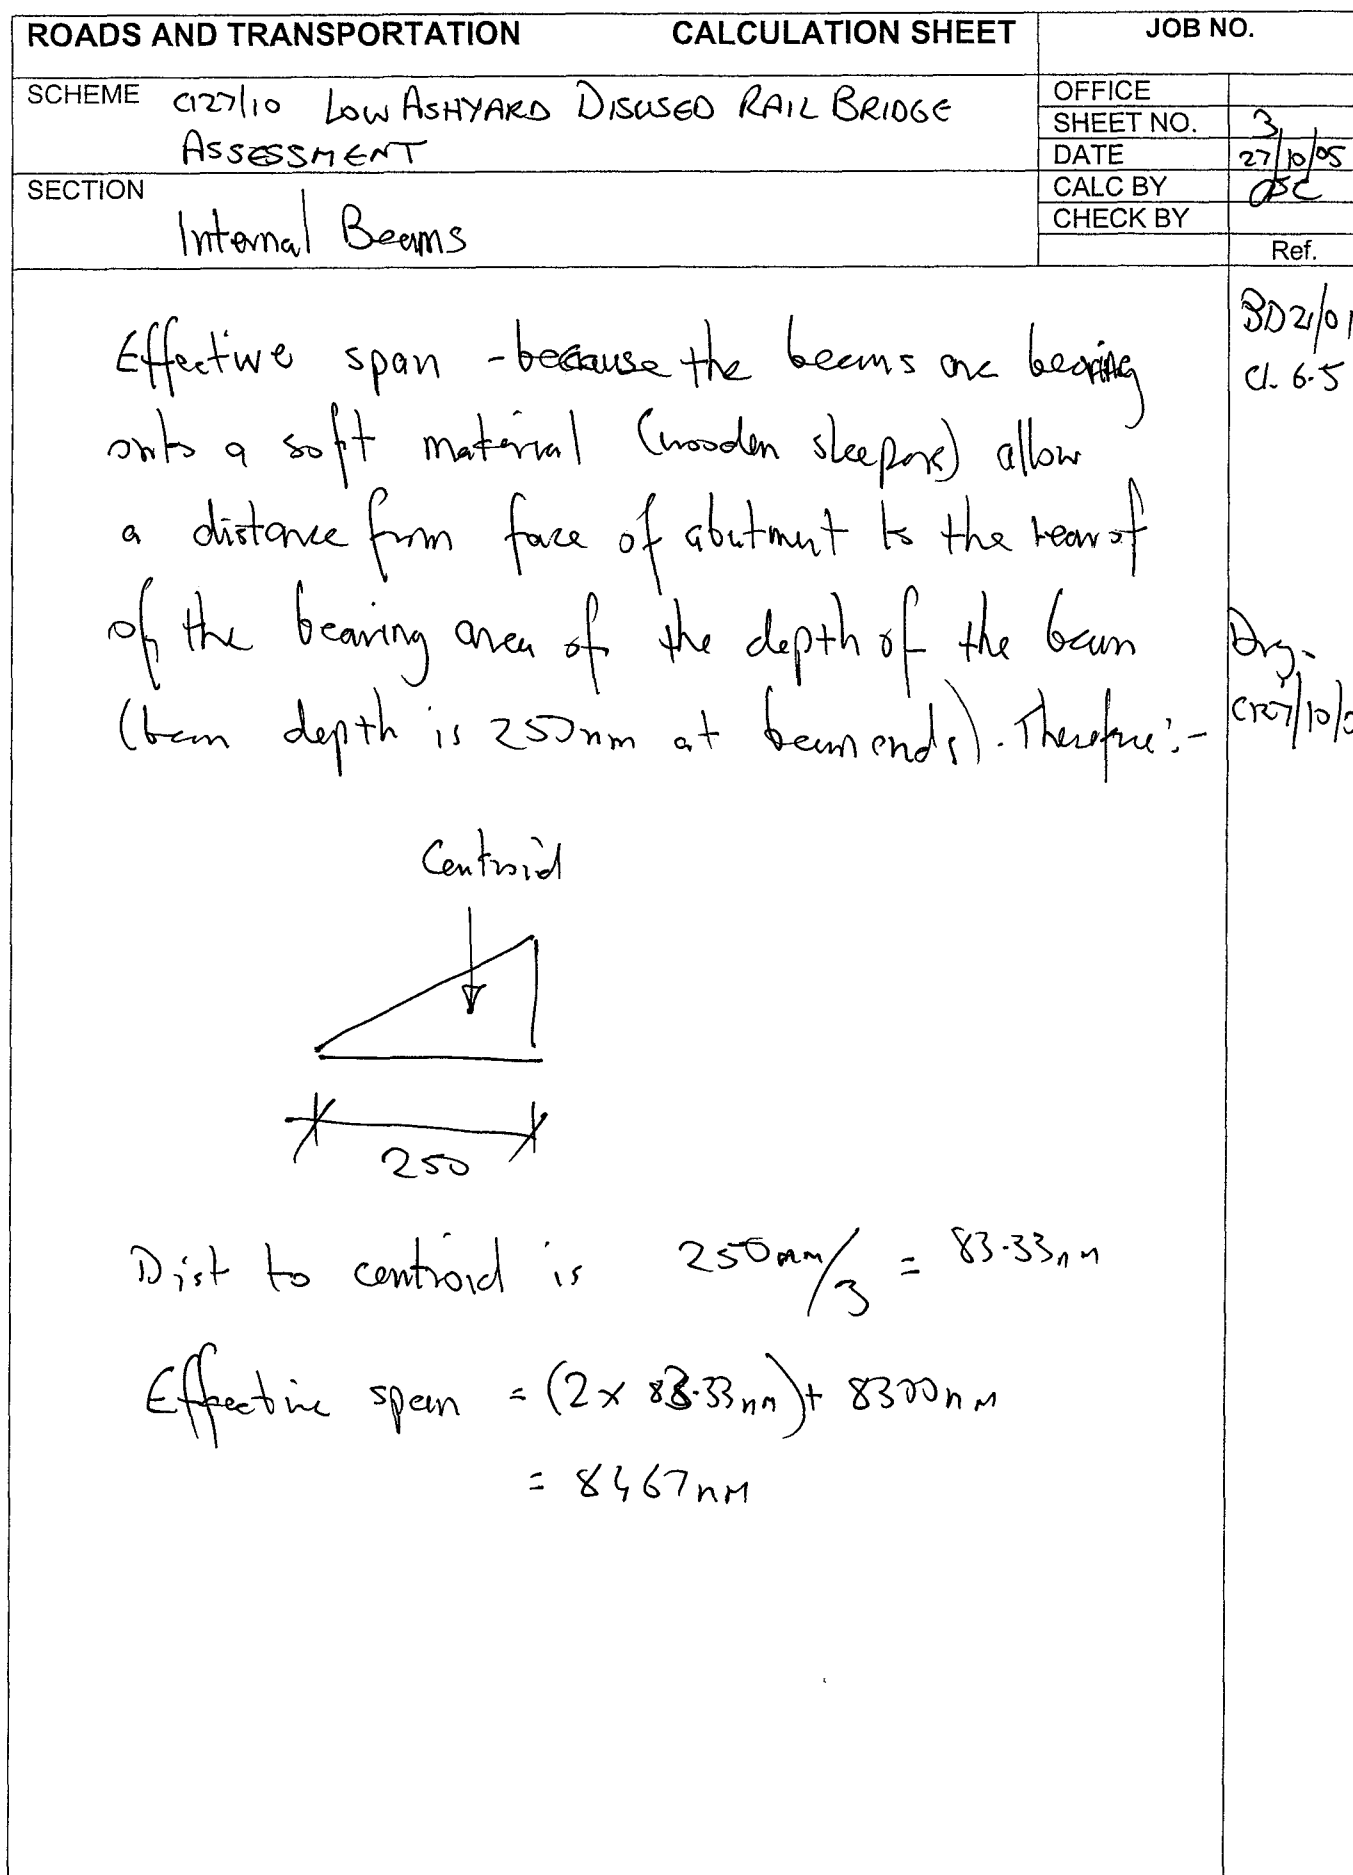 ROADS AND TRANSPORTATION CALCULATION SHEET JOB NO.
SCHEME C127/10 LOW ASHYARD DISUSED RAIL BRIDGE
ASSESSMENT
OFFICE
SHEET NO. 3
DATE 27/10/05
SECTION
Internal Beams
CALC BY
CHECK BY
Ref.
Effective span - because the beams are bearing
onto a soft material (wooden sleepers) allow
a distance from face of abutment to the rear of
of the bearing area of the depth of the beam
(beam depth is 250mm at beam ends). Therefore:-
BD21/01
Cl. 6.5
Drg.
C127/10/
Centroid
250
Dist to centroid is 250mm/3 = 83.33mm
Effective span = (2 x 83.33mm) + 8300mm
= 8467mm